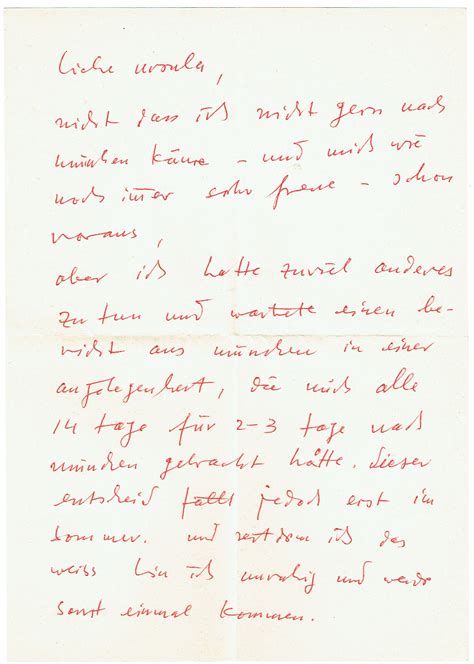 liebe ursula,
nicht dass ich nicht gern nach
münchen käme - und mich wie
noch immer sehr freue - schon
voraus,
aber ich hatte zuviel anderes
zu tun und wartete einen be-
richt aus münchen in einer
angelegenheit, die mich alle
14 tage für 2-3 tage nach
münchen gebracht hätte. dieser
entscheid fällt jedoch erst im
sommer. und seitdem ich das
weiss bin ich unruhig und werde
sonst einmal kommen.